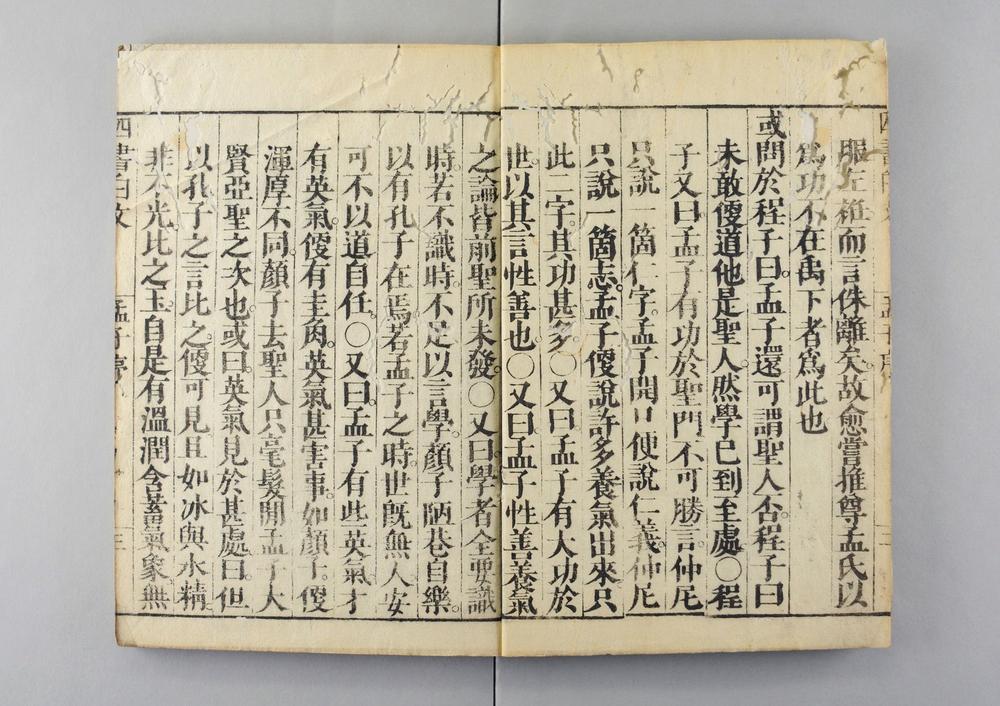 服左衽而言侏離矣。故愈嘗推尊孟氏以
爲功不在禹下者爲此也
或問於程子曰。孟子還可謂聖人否。程子曰
未敢便道他是聖人然學已到至處〇程
子又曰孟子有功於聖門不可勝言。仲尼
只說一箇仁字。孟子開口便說仁義。仲尼
只說一箇志。孟子便說許多養氣出來。只
此二字其功甚多〇又曰孟子有大功於
世。以其言性善也〇又曰孟子性善養氣
之論皆前聖所未發。〇又曰學者全要識
時。若不識時。不足以言學顏子陋巷自樂。
以有孔子在焉。若孟子之時。世旣無人安
可不以道自任。〇又曰。孟子有些英氣才
有英氣便有圭角。英氣甚害事。如顏子。便
渾厚不同。顏子去聖人只毫髮間孟子大
賢亞聖之次也。或曰。英氣見於甚處。曰但
以孔子之言比之。便可見且如冰與水精
非不光比之玉。自是有溫潤含蓄氣象。無
四書白文 孟子序